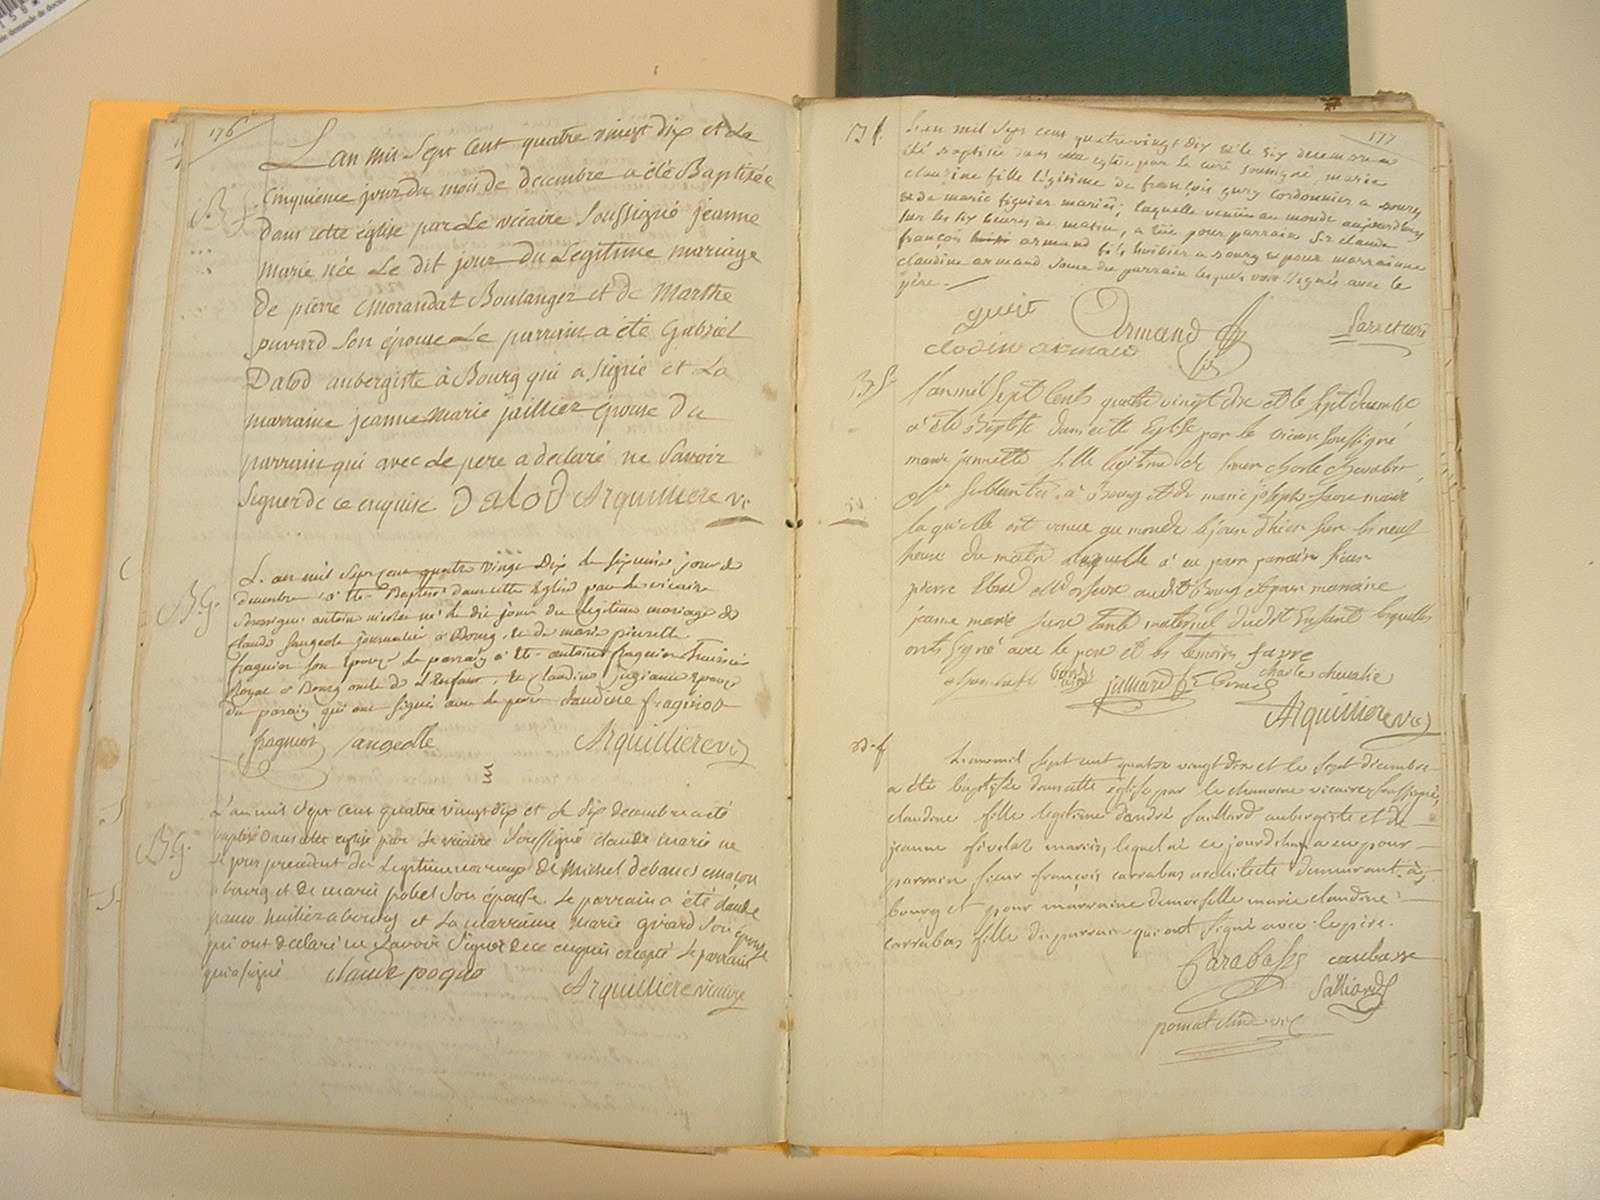 176
L'an mil sept cent quatre vingt dix et le
B. f.
cinquieme jour du mois de decembre a été Baptisée
dans cette église par Le vicaire soussigné jeanne
marie née Le dit jour du Legitime mariage
de pierre Morandat Boulanger et de Marthe
puvard son épouse Le parrain a été Gabriel
Dalod aubergiste à Bourg qui a signé et La
marraine jeanne marie jaillier épouse du
parrain qui avec Le pere a declaré ne savoir
signer de ce enquise Dalod Arquilliere vi
L'an mil sept cent quatre vingt dix le sixieme jour de
B. G.
decembre a été Baptisé dans cette Eglise par le vicaire
soussigné antoine nicolas né le dit jour du Legitime mariage de
claude sangeolle journalier à Bourg et de marie pierrette
fragnion son Epouse Le parrain a été antoine fragnion huissier
Royal à Bourg oncle de l'Enfant et claudine Epouse
du parain qui ont signé avec le pere claudine fragnion
fragnion sangeolle Arquilliere vi
L'an mil sept cent quatre vingt dix et le six decembre a eté
B. G.
baptisé dans cette eglise par Le vicaire soussigné claude marie né
le jour precedent du Legitime mariage de Michel debaucs maçon
a bourg et de marie pobel son épouse Le parrain a été claude
huilier a bourg et La marraine marie girard son épouse
qui ont declaré ne savoir signer de ce enquis excepté le parrain
qui a signé claude poquo
Arquilliere vicaire
177
B. f.
L'an mil sept cent quatre vingt dix et le six decembre a
été baptisée dans cette eglise par le curé soussigné marie
claudine fille légitime de françois gury cordonnier a bourg
et de marie figuier mariés; laquelle venüe au monde aujourd'huy
sur les six heures du matin, a eüe pour parrain Sr claude
françois armand fils huissier a bourg et pour marrainne
claudine armand soeur du parrain lesquels ont signés avec le
père.
Armand fils
clodine armand
B. f.
L'an mil sept cents quatre vingt dix et le sept decembre
a été baptisé dans cette Eglise par le vicaire soussigné
marie jannette fille légitime de sieur charle chevalier
à Bourg et de marie josephe favre mariés
laquelle est venue au monde le jour d'hier sur les neuf
heure du matin laquelle a eu pour parrain sieur
pierre orfevre audit bourg et pour marraine
jeanne marie favre tante maternel dudit Enfant lesquelles
ont signé avec le pere et les temoins favre
juillard charle chevalie
Arquilliere vi
B. f.
L'an mil sept cent quatre vingt dix et le sept décembre
a été baptisée dans cette église par le chanoine vicaire soussigné,
claudine fille legitime d'andré saillard aubergiste et de
jeanne fivelas mariés, lequel né ce jourd'huy a eu pour
parrain sieur françois carrabas architecte demeurant à
bourg et pour marraine demoiselle marie claudine
carrabas fille du parrain qui ont signé avec le père.
Carabasse carabasse
Salliard